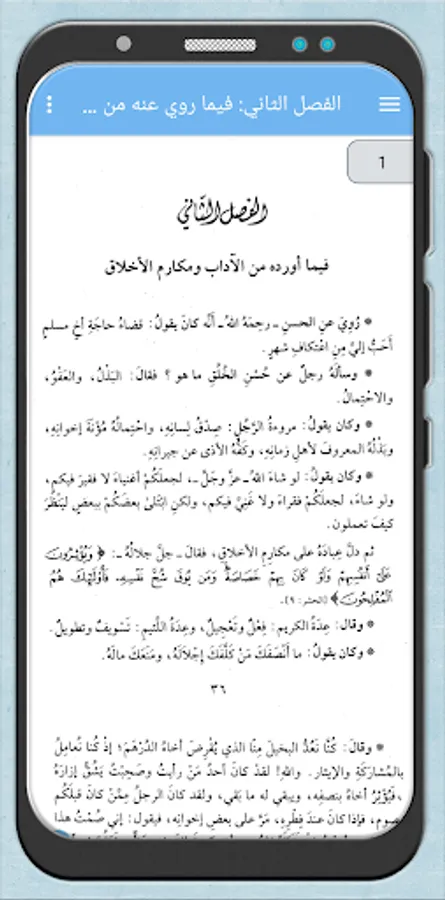 الفصل الثاني: فيما روي عنه من ...
1
الفصل الثاني
فيما أورده من الآداب ومكارم الأخلاق
* رُوِيَ عنِ الحسنِ ـ رحمَهُ اللهُ ـ أَنَّه كانَ يقولُ: قضاءُ حاجَةِ أخٍ مسلمٍ
أَحَبُّ إليَّ مِنِ اعْتكافِ شهرٍ.
* وسألَهُ رجلٌ عن حُسْنِ الخُلُقِ ما هو؟ فقالَ: البَذْلُ، والعَفْوُ،
والاحْتِمالُ.
* وكان يقولُ: مروءةُ الرَّجُلِ: صِدْقُ لِسانِهِ، واحْتِمالُهُ مُؤْنَةَ إخوانِهِ،
وبَذْلُهُ المعروفَ لأهلِ زمانِهِ، وكَفُّهُ الأذى عن جيرانِهِ.
* وكان يقولُ: لو شاءَ اللهُ ـ عزَّ وجلَّ ـ، لجعلَكُمْ أغنياءَ لا فقيرَ فيكم،
ولو شاءَ، لجعلَكُمْ فقراءَ ولا غَنِيَّ فيكم، ولكنِ ابْتَلىٰ بعضَكُمْ ببعضٍ ليَنْظُرَ
كيفَ تعملون.
ثم دلَّ عِبادَهُ على مكارِمِ الأخلاقِ، فقالَ ـ جلَّ جلالُهُ ـ: ﴿ وَيُؤْثِرُونَ
عَلَىٰ أَنْفُسِهِمْ وَلَوْ كَانَ بِهِمْ خَصَاصَةٌ وَمَن يُوقَ شُحَّ نَفْسِهِ فَأُولَٰئِكَ هُمُ
الْمُفْلِحُونَ ﴾ [الحشر: ٩].
* وقال: عِدَةُ الكريم: فِعْلٌ وتَعْجِيلٌ، وعِدَةُ اللَّئيم: تَسْويفٌ وتطويلٌ.
* وكان يقولُ: ما أَنْصَفَكَ مَنْ كَلَّفَكَ إِجْلالَهُ، ومَنَعَكَ مالَهُ.
٣٦
* وقالَ: كُنَّا نَعُدُّ البخيلَ مِنَّا الذي يُقْرِضُ أخاهُ الدِّرْهَمَ؛ إذ كُنا نُعامِلُ
بالمُشارَكَةِ والإيثارِ. واللهِ! لقدْ كانَ أحدُ مَنْ رأيتُ وصَحِبْتُ يَشُقُّ إزارَهُ
فيُؤْثِرُ أخاهُ بنصفِهِ، ويبقي له ما بَقي، ولقد كان الرجلُ مِمَّنْ كان قبلَكُم
يصوم، فإذا كانَ عندَ فِطْرِهِ، مَرَّ على بعضِ إخوانِهِ، فيقول: إني صُمْتُ هذا